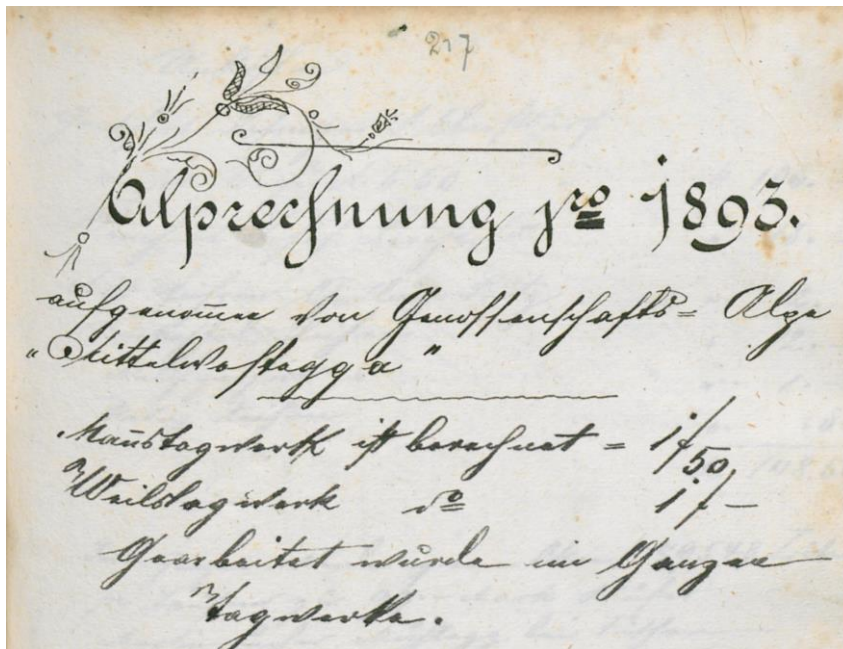 217
Alprechnung pro 1893.
aufgenomēn von Genossenschafts= Alpe
„Mittel
Man̄stagwerk ist berechnet = 1 f 50
Weibstagwerk do 1 f –
Gearbeitet wurde im Ganzen
Tagwerke.